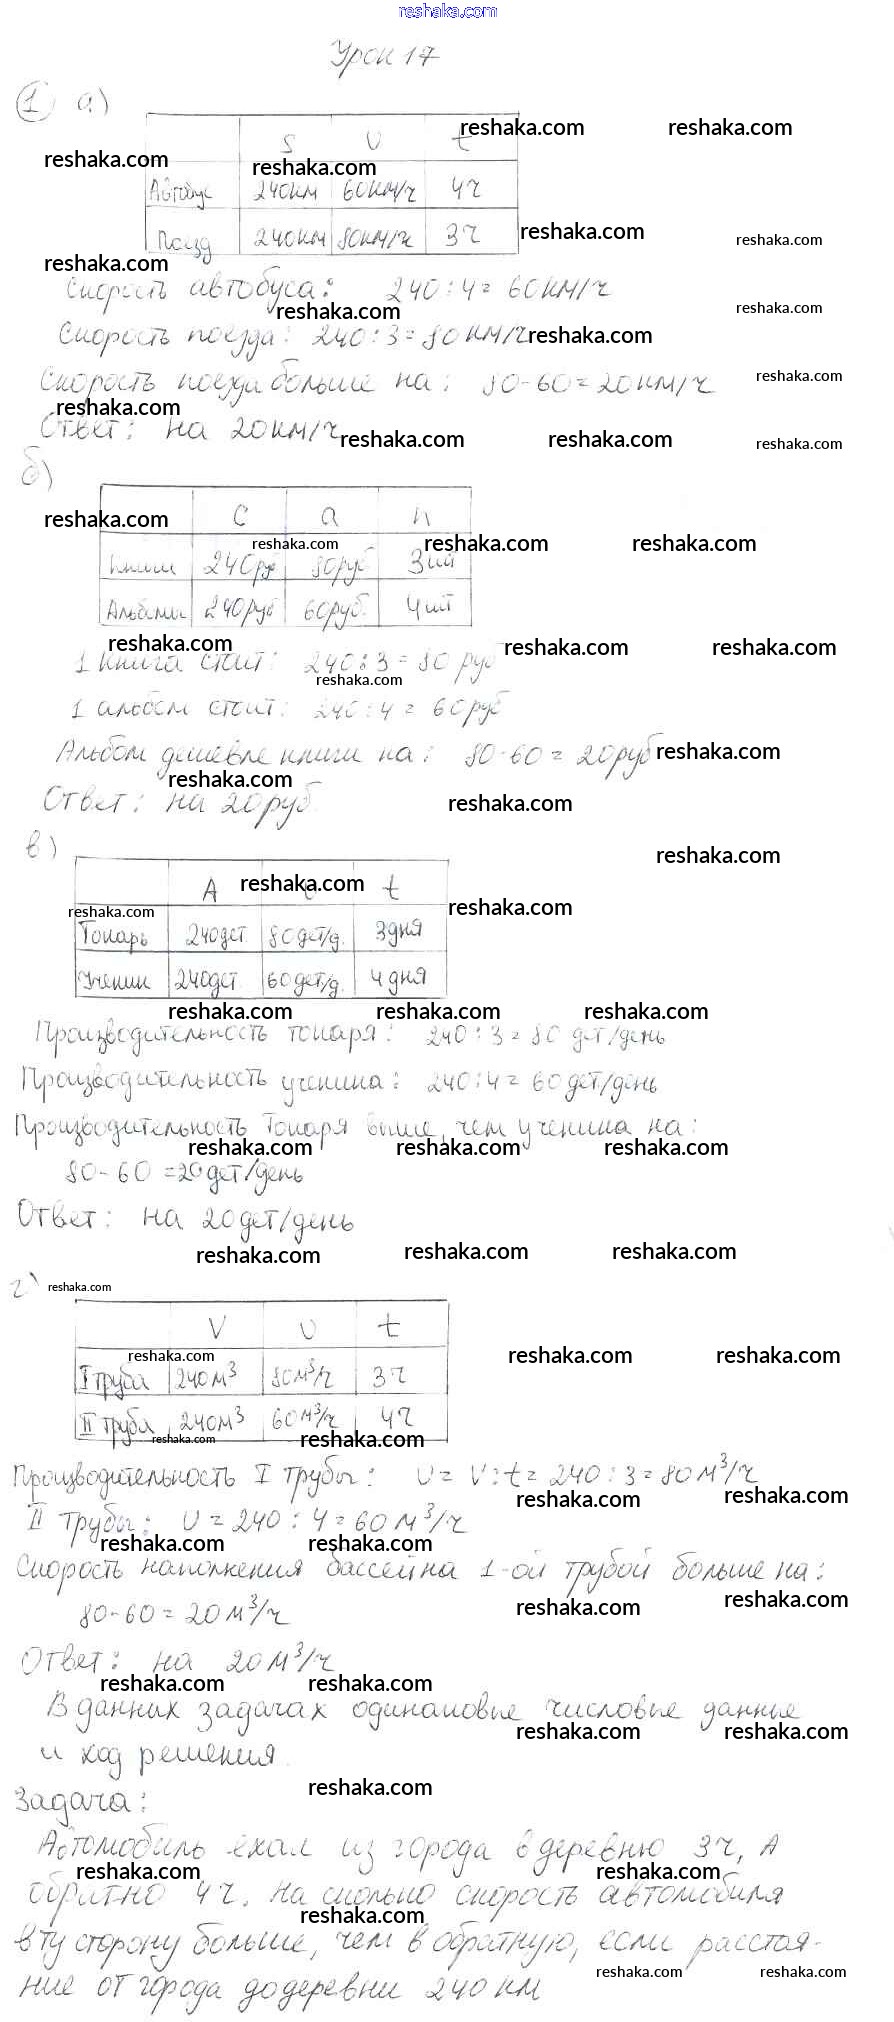 reshaka.com
Урок 17
1 а)
s v t
Автобус 240км 60км/ч 4ч
Поезд 240км 80км/ч 3ч
Скорость автобуса: 240:4=60км/ч
Скорость поезда: 240:3=80км/ч
Скорость поезда больше на: 80-60=20км/ч
Ответ: на 20км/ч
б)
C a n
Книги 240руб 80руб 3шт
Альбомы 240руб 60руб. 4шт
1 книга стоит: 240:3=80 руб
1 альбом стоит: 240:4=60руб
Альбом дешевле книги на: 80-60=20руб
Ответ: на 20руб.
в)
A t
Токарь 240дет. 80дет/д. 3дня
Ученик 240дет. 60дет/д. 4дня
Производительность токаря: 240:3=80 дет/день
Производительность ученика: 240:4=60дет/день
Производительность токаря выше, чем ученика на:
80-60=20дет/день
Ответ: на 20дет/день
г)
V υ t
I труба 240м³ 80м³/ч 3ч
II труба 240м³ 60м³/ч 4ч
Производительность I трубы: υ=V:t=240:3=80м³/ч
II трубы: υ=240:4=60м³/ч
Скорость наполнения бассейна 1-ой трубой больше на:
80-60=20м³/ч
Ответ: на 20м³/ч
В данных задачах одинаковые числовые данные
и ход решения.
Задача:
Автомобиль ехал из города в деревню 3ч, А
обратно 4ч. На сколько скорость автомобиля
в ту сторону больше, чем в обратную, если расстоя-
ние от города до деревни 240км